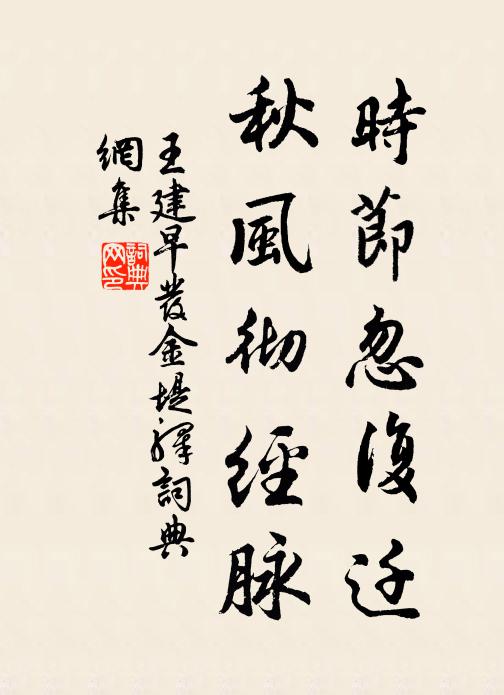 時節忽復迁
秋風彻經脉
王建早發金堤驛詞典
網集
詞典網印